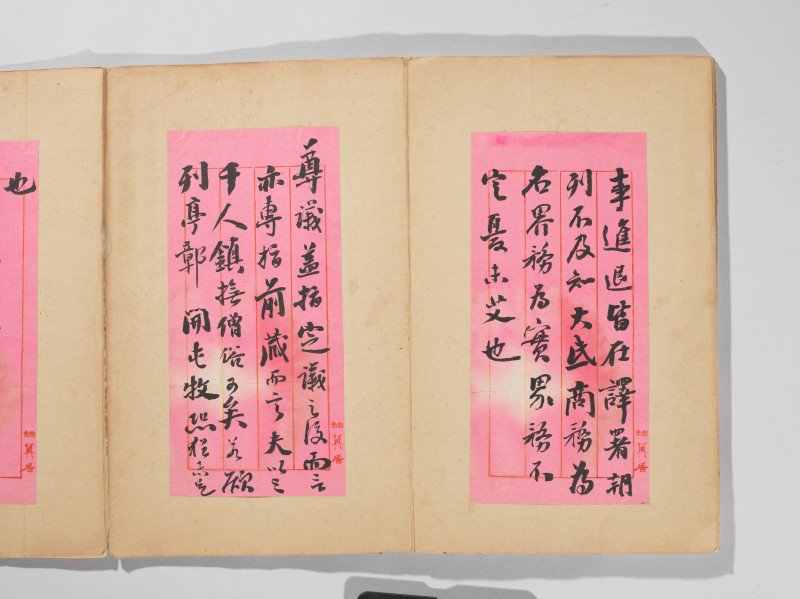 事進退皆在譯署朝
列不及知大氐商務為
名界務為實界務不
定憂未艾也
尊議蓋指定議之後而言
亦專指前藏而言夫以三
千人鎮撫僧俗可矣若欲
列亭鄣開屯牧恐猶
也